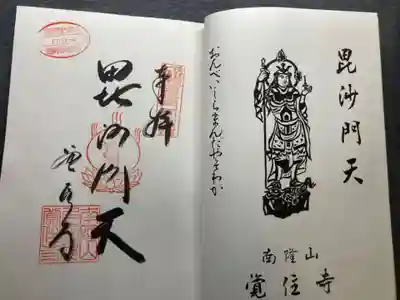 毘沙門天
おんべいしらまんだやそわか
南隆山
覚住寺
奉拝
毘沙門天